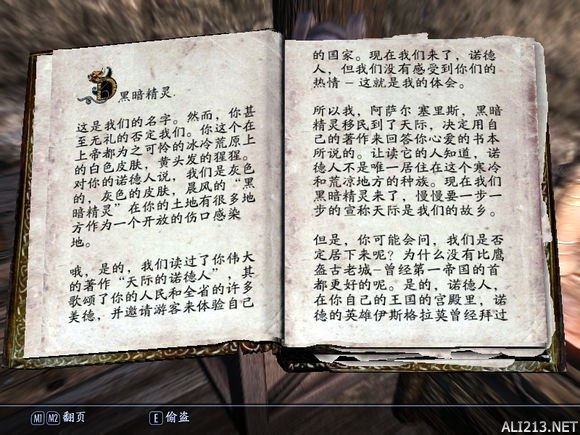 黑暗精灵.
这是我们的名字。然而，你甚
至无礼的否定我们。你这个在
上帝都为之可怜的冰冷荒原上
的白色皮肤，黄头发的猩猩。
对你的诺德人说，我们是灰色
的，灰色的皮肤，晨风的“黑
暗精灵”在你的土地有很多地
方作为一个开放的伤口感染
地。
哦，是的，我们读过了你伟大
的著作“天际的诺德人”，其
歌颂了你的人民和全省的许多
美德，并邀请游客来体验自己
的国家。现在我们来了，诺德
人，但我们没有感受到你们的
热情 – 这就是我的体会。
所以我，阿萨尔 塞里斯，黑暗
精灵移民到了天际，决定用自
己的著作来回答你心爱的书本
所说的。让读它的人知道，诺
德人不是唯一居住在这个寒冷
和荒凉地方的种族。现在我们
黑暗精灵来了，慢慢要一步一
步的宣称天际是我们的故乡。
但是，你可能会问，我们是否
定居下来呢？为什么没有比鹰
盔古老城-曾经第一帝国的首
都更好的呢。是的，诺德人，
在你自己的王国的宫殿里，诺
德的英雄伊斯格拉莫曾经拜过
M1 M2 翻页
E 偷盗
ALI213.NET